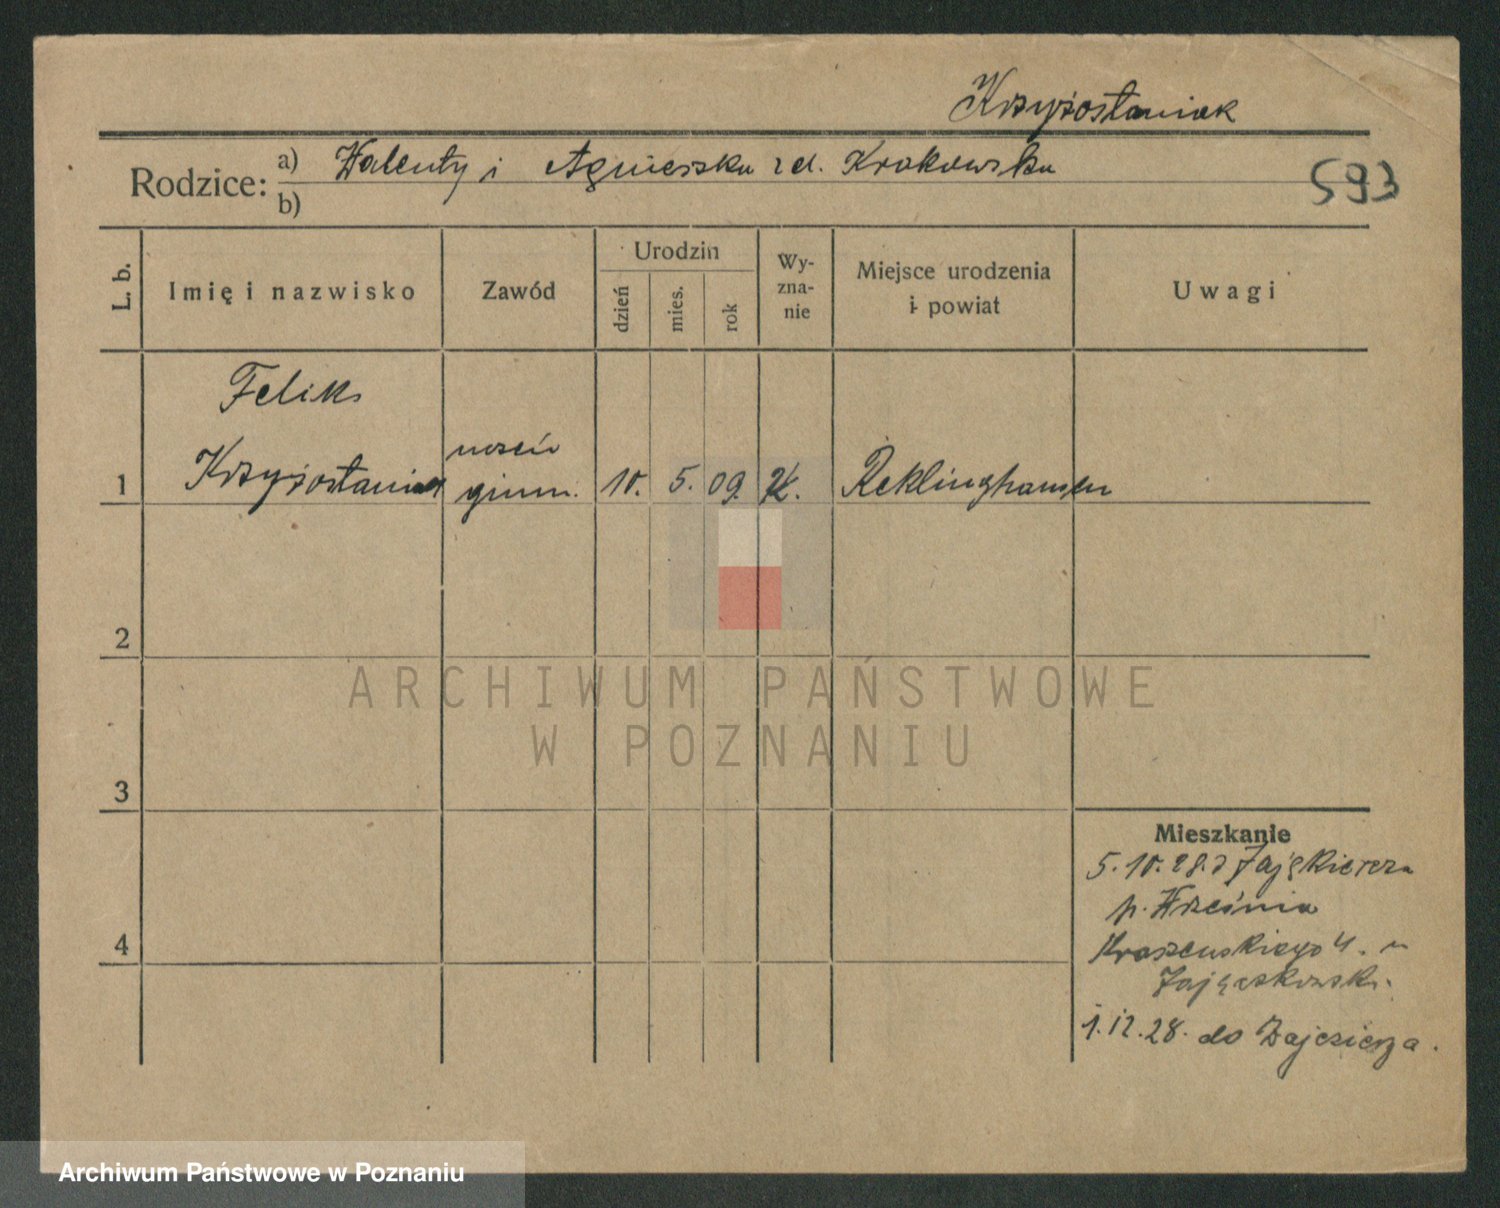 Krzyżostaniak
Rodzice: a) Walenty i Agnieszka z d. Krakowska
b)
593
L. b.
Imię i nazwisko
Zawód
Urodzin
dzień
mies.
rok
Wy-
zna-
nie
Miejsce urodzenia
i powiat
Uwagi
Feliks
1 Krzyżostaniak
uczeń
gimn.
10. 5. 09. K. Reklinghausen
2
ARCHIWUM PAŃSTWOWE
W POZNANIU
3
4
Mieszkanie
5.10.28. z
p. Września
Kraszewskiego 4.
1.12.28. do
Archiwum Państwowe w Poznaniu